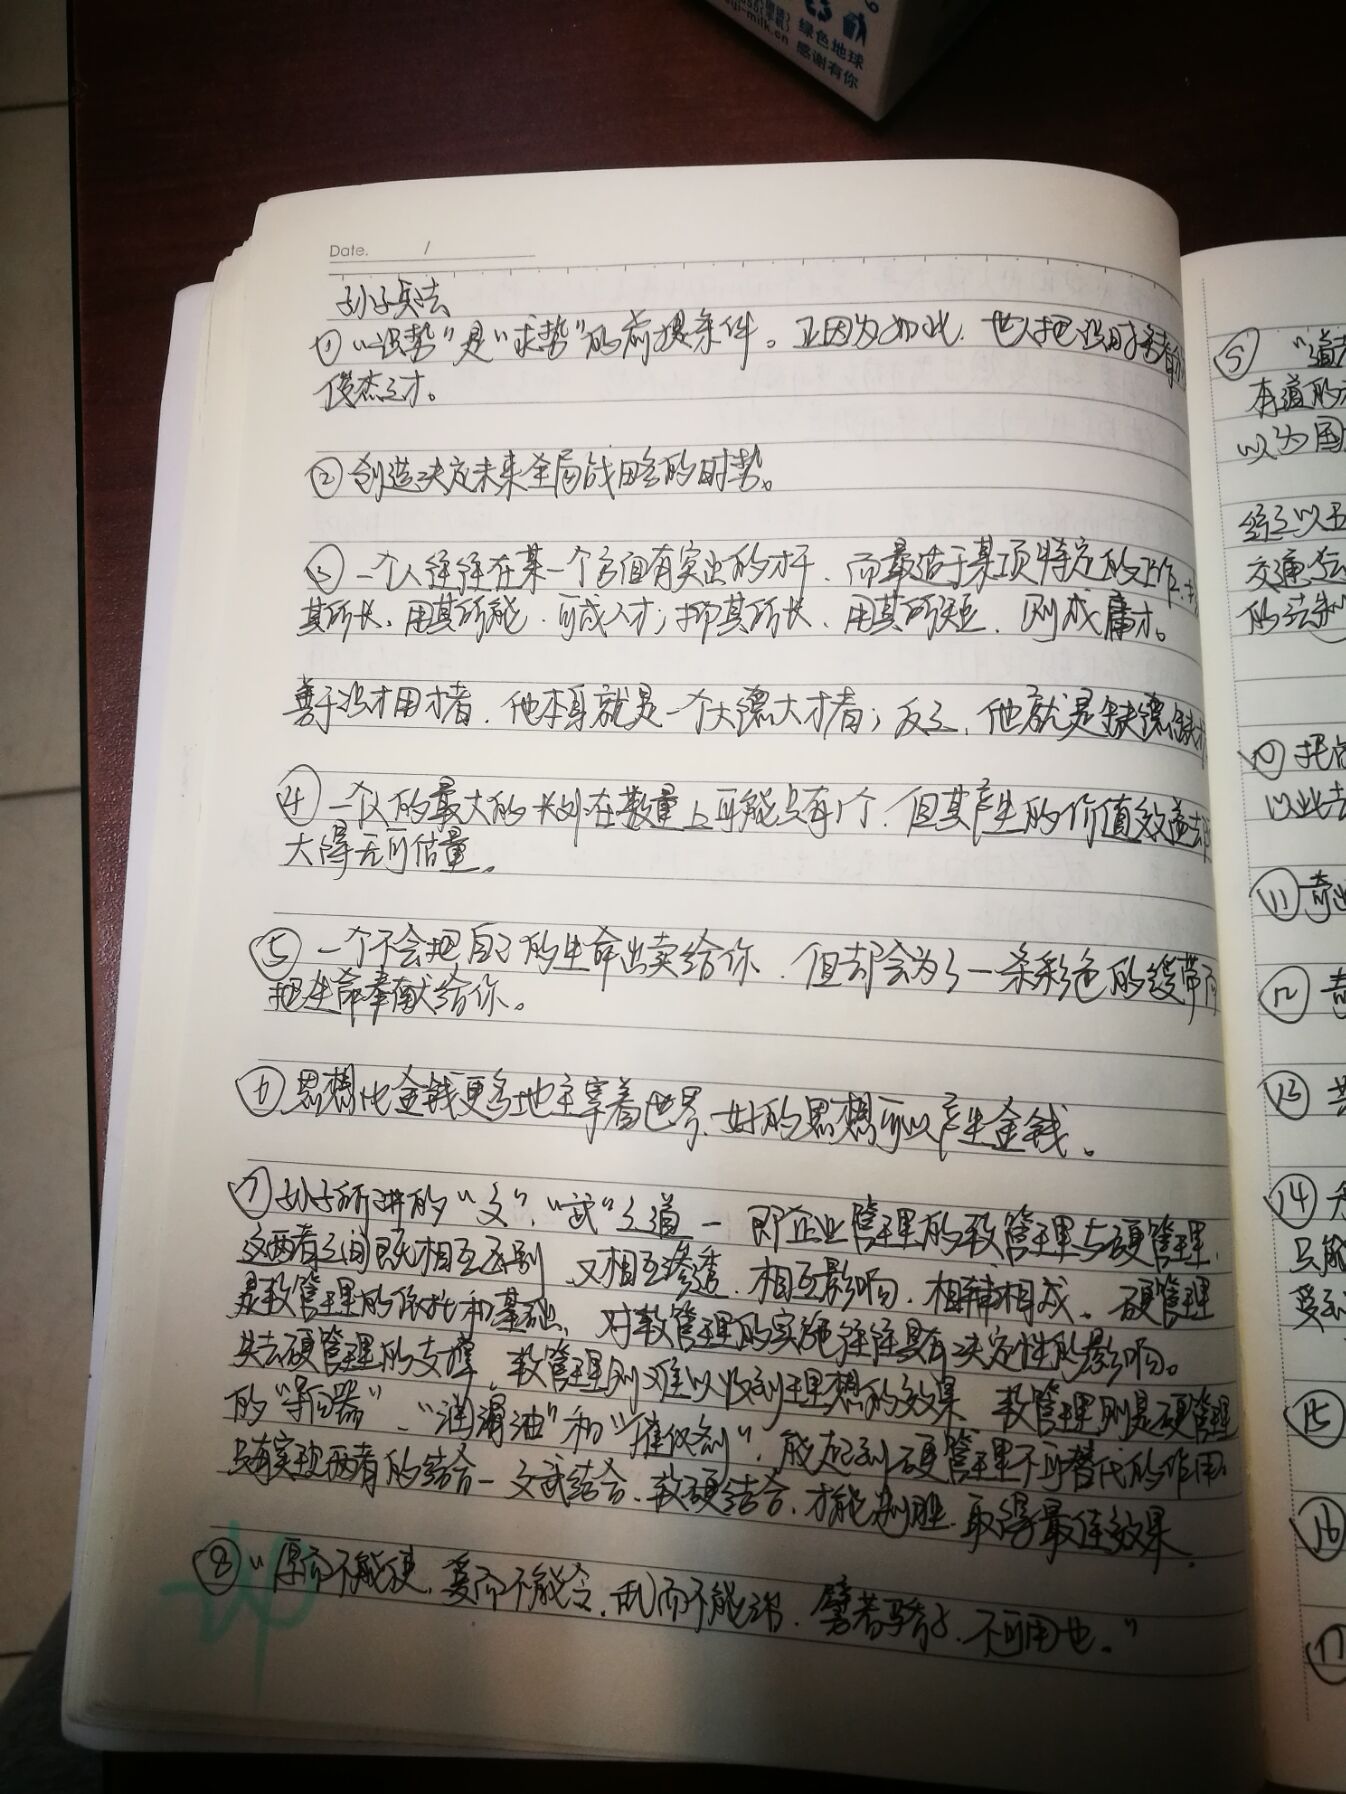 绿色地球
感谢有你
Date. /
孙子兵法
① “识势”是“求势”的前提条件。正因为如此，世人把识时务者
俊杰之才。
② 创造决定未来全局战略的时势。
③ 一个人往往在某一个方面有突出的才干，而最适于某项特定的工作，
其所长，用其所能，可成人才；抑其所长，用其所短，则成庸才。
善于识才用才者，他本身就是一个大德大才者；反之，他就是缺德缺才
④ 一个人的最大的长处在数量上可能只有1个，但其产生的价值效益却
大得无可估量。
⑤ 一个不会把自己的生命出卖给你，但却会为了一条彩色的绶带而
把生命奉献给你。
⑥ 思想比金钱更多地主宰着世界，好的思想可以产生金钱。
⑦ 孙子所讲的“文”，“武”之道一即企业管理的软管理与硬管理，
这两者之间既相互区别 又相互渗透，相互影响，相辅相成。硬管理
是软管理的依托和基础，对软管理的实施往往具有决定性的影响。
失去硬管理的支撑，软管理则难以收到理想的效果，软管理则是硬管理
的“导向器”、“润滑油”和“催化剂”，能起到硬管理不可替代的作用。
只有实现两者的结合一文武结合、软硬结合，才能制胜，取得最佳效果，
⑧ “厚而不能使，爱而不能令，乱而不能治，譬若骄子，不可用也。”
⑨ “道
有道的
以为国
经之以五
的法制
⑩ 把
以此
⑪ 奇
⑫
⑬
⑭
只能
⑮
⑯
⑰